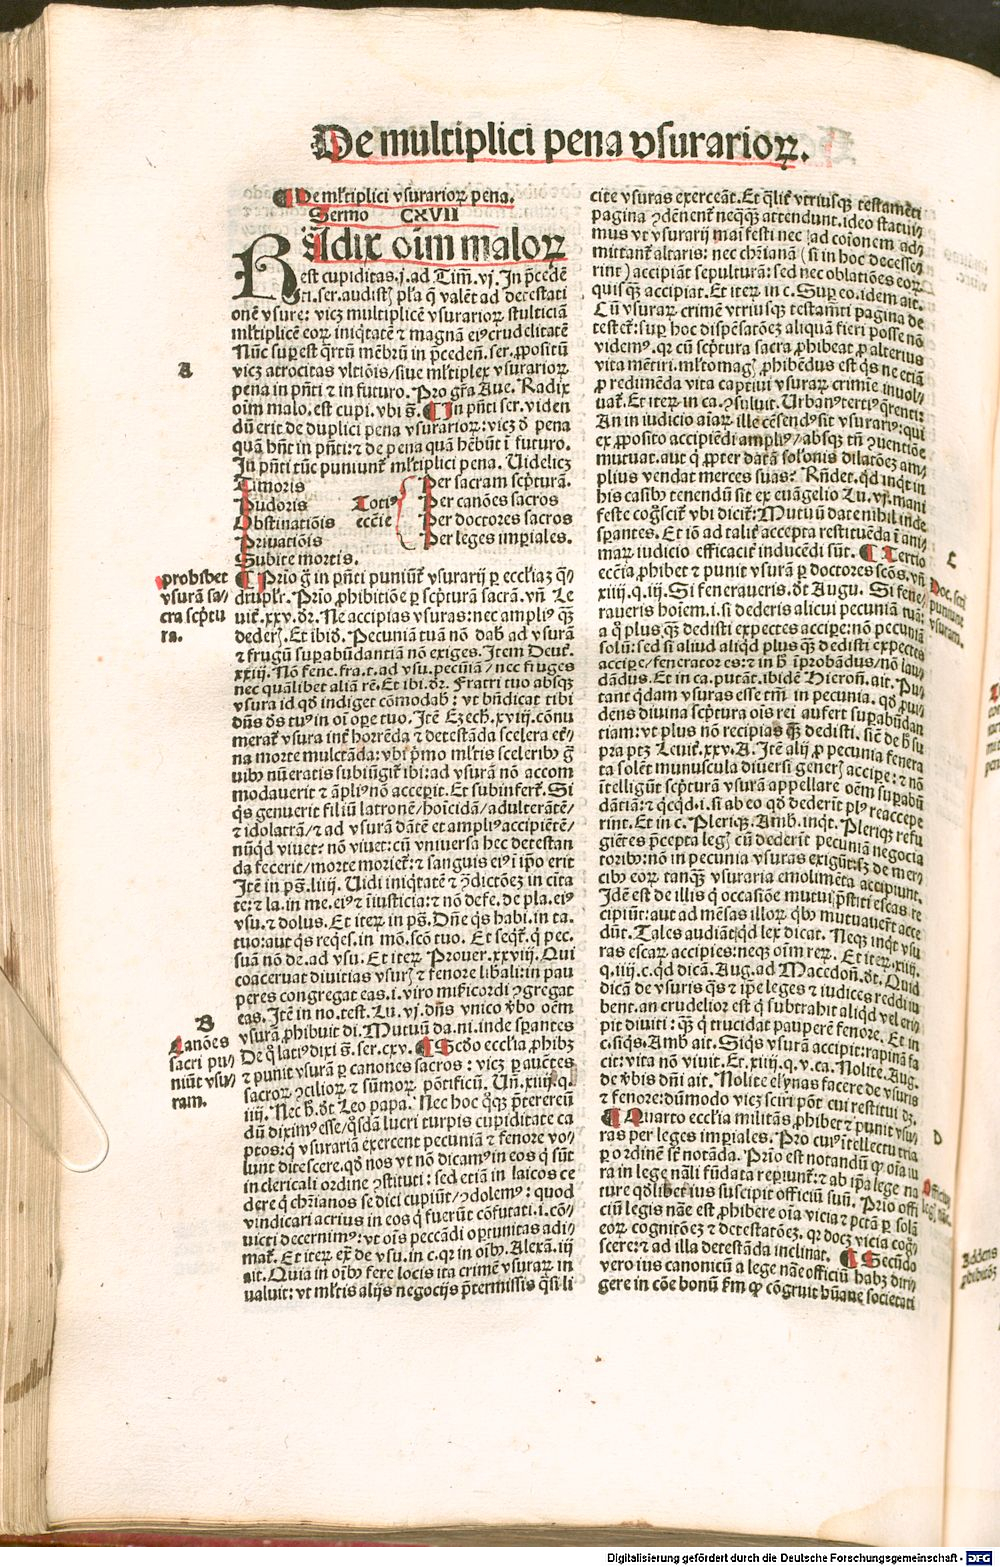 De multiplici pena vsurarioꝝ.
¶ De mͣltiplici vsurarioꝝ pena.
Sermo CXVII
RAdix oīm maloꝝ
est cupiditas.j.ad Tim̄.vj. In p̄cedē
ti.ser.audistꝭ pl̄a q̄ valēt ad detestati
onē vsure: vicꝫ multiplicē vsurarioꝝ stulticiā
ml̓tiplicē eoꝝ iniq̇tatē ⁊ magnā eiꝰ crudelitatē
Nūc suꝑest q̄rtū mēbrū in p̄ceden̄.ser.ꝓpositū
vicꝫ atrocitas vltiōis/siue ml̓tiplex vsurarioꝝ
pena in pn̄ti ⁊ in futuro. Pro gr̄a Aue. Radix
oīm malo.est cupi.vbi s̄. ¶ In pn̄ti ser.viden
dū erit de duplici pena vsurarioꝝ: vicꝫ d̓ pena
quā hn̄t in pn̄ti: ⁊ de pena quā hēbūt ī futuro.
In pn̄ti tūc puniunt̄ ml̓tiplici pena. Uidelicꝫ
Timoris
Pudoris
Obstinatiōis
Priuatiōis
Subite mortis.
Totiꝰ
ecc̄ie
Per sacram scp̄turā.
Per canōes sacros
Per doctores sacros
Per leges imꝑiales.
¶ Prio g̊ in pn̄ti puniūt̄ vsurarij ꝑ eccl̄iaꝫ q̄-
druplr̄. Prīo ꝓhibitiōe ꝑ scp̄turā sacrā. vn̄ Le
uit̄.xxv.dr̄. Ne accipias vsuras: nec ampliꝰ q̄ꝫ
dederꝭ. Et ibid̄. Pecuniā tuā nō dab̄ ad vsurā
⁊ frugū suꝑabūdantiā nō exiges. Item Deut̄.
xxiij. Nō fenc.fra.t.ad vsu.pecuniā/nec fruges
nec quālibet aliā rē. Et ibi.dr̄. Fratri tuo absqꝫ
vsura id qd̓ indiget cōmodab̄: vt bn̄dicat tibi
dn̄s ds̄ tuꝰ in oī oꝑe tuo. Itē Ezech̄.xviij.cōnu
merat̄ vsura int̄ horrēda ⁊ detestāda scelera et̄r-
na morte mulctāda: vbi p̄mo ml̓tis sceleribꝰ g̓
uibꝰ nūeratis subiūgit̄ ibi: ad vsurā nō accom
modauerit ⁊ āpliꝰ nō acceꝑit. Et subinfert̄. Si
qͥs genuerit filiū latronē/hoīcidā/adulterātē/
⁊ idolatrā/⁊ ad vsurā dātē et ampliꝰ accipiētē/
nūqͥd viuet? nō viuet: cū vniuersa hec detestan
da fecerit/morte moriet̄: ⁊ sanguis eiꝰ ī ip̄o erit
Itē in ps̄.liiij. Uidi iniq̇tatē ⁊ ꝯdictōeꝫ in cīta
te: ⁊ la.in me.eiꝰ ⁊ īiusticia: ⁊ nō defe.de pla.eiꝰ
vsu.⁊ dolus. Et iteꝝ in ps̄. Dn̄e qͥs habi.in ta.
tuo: aut qͥs reqͥes.in mō.scō tuo. Et seqͥt̄.qͥ pec.
suā nō de.ad vsu. Et iteꝝ Prouer.xxviij. Qui
coaceruat diuitias vsurꝭ ⁊ fenore li̇bali: in pau
peres congregat eas.i.viro mīricordi ꝯgregat
eas. Itē in no.test. Lu.vj. dn̄s vnico v̓bo oēm
vsurā ꝓhibuit di. Mutuū da.ni.inde sꝑantes
De qͦ latiꝰ dixi s̄.ser.cxv. ¶ Scd̓o eccl̄ia ꝓhibꝫ
⁊ punit vsurā ꝑ canones sacros: vicꝫ ꝑ auctes
sacroꝝ ꝯcilioꝝ ⁊ sūmoꝝ pōtificū. Un̄.xiiij.q.
iiij. Nec h̄.dt̄ Leo papa. Nec hoc qͦqꝫ p̄tereūū
dū diximꝰ esse/qͦsdā lucri turpis cupiditate ca
ptos: qͥ vsurariā exercent pecuniā ⁊ fenore vo-
lunt ditescere. qd̓ nos vt nō dicamꝰ in eos qͥ sūt
in clericali ordine ꝯstituti: sed etiā in laicos ce
dere qͥ chr̄ianos se dici cupiūt/ꝯdolemꝰ: quod
vindicari acrius in eos qͥ fuerūt cōfutati.i.cō-
uicti decernimꝰ: vt oīs peccādi oꝑtunitas adi-
mat̄. Et iteꝝ ex̄ de vsu.in c.qꝛ in oībꝰ. Alexā.iij
ait. Quia in oībꝰ fere locis ita crimē vsuraꝝ in
ualuit: vt ml̓tis alijs negocijs p̄termissis qͣsi li
cite vsuras exerceāt. Et q̄lit̄ vtriusqꝫ testamēti
pagina ꝯdēnent̄ neqͣqꝫ attendunt. ideo statui/
mus vt vsurarij maī festi nec ad cōionem ad-
mittant̄ altaris: nec chr̄ianā (si in hoc decesse-
rint) accipiāt sepulturā: sed nec oblatiōes eoꝝ
quisqꝫ accipiat. Et iteꝝ in c. Suꝑ eo. idem ait.
Cū vsuraꝝ crimē vtriusqꝫ testam̄ti pagina de
testet̄: suꝑ hoc dispēsatōeꝫ aliquā fieri posse nō
videmꝰ. qꝛ cū scp̄tura sacra ꝓhibeat ꝓ alterius
vita mētiri. ml̓tomagꝭ ꝓhibēdus est qͥs ne etiā
ꝓ redimēda vita captiui vsuraꝝ crimīe inuol/
uat̄. Et iteꝝ in ca. ꝯsuluit. Urbanꝰ tertiꝰ q̄renti:
An in iudicio aīaꝝ ille cēsendꝰ sit vsurariꝰ: qui
ex ꝓposito accipiēdi ampliꝰ/absqꝫ tn̄ ꝯuentiōe
mutuat. aut qͥ ꝓpter datā solonis dilatōeꝫ am/
plius vendat merces suas? Rn̄det. qd̓ inqͥt in
his casibꝰ tenendū sit ex euāgelio Lu.vj. mani
feste cog̓scit̄ vbi dicit̄: Mutuū date nihil inde
sꝑantes. Et iō ad talit̄ accepta restituēda ī ani
maꝝ iudicio efficacit̄ inducēdi sūt. ¶ Tertio
ecc̄ia ꝓhibet ⁊ punit vsurā ꝑ doctores scōs. vn̄
xiiij.q.iij. Si feneraueris.dt̄ Augu. Si fene/
raueris hoīem.i.si dederis alicui pecuniā tuā:
a qͦ plus qͣꝫ dedisti expectes acciꝑe: nō pecuniā
solū: sed si aliud aliqͥd plus qͣꝫ dedisti expectes
acciꝑe/fenerator es: ⁊ in h̓ īprobādus/nō lau/
dādus. Et in ca.putāt.ibidē Hieron̄.ait. Pu/
tant qͥdam vsuras esse tm̄ in pecunia. qd̓ ꝓui/
dens diuina scp̄tura oīs rei aufert suꝑabūdan
tiam: vt plus nō recipias qͣꝫ dedisti. sic̄ de h̓ su
pra ptꝫ Leuit̄.xxv.A. Itē alij ꝓ pecunia fenera
ta solēt munuscula diuersi generꝭ acciꝑe: ⁊ nō
ītelligūt scp̄turā vsurā appellare oēm suꝑabū
dātiā: ⁊ qͥcqͥd.i.si ab eo qd̓ dederit plꝰ reaccepe
rint. Et in c. Pleriqꝫ. Amb.inqͥt. Pleriqꝫ refu
giētes p̄cepta legꝭ cū dederīt pecuniā negocia
toribꝰ: nō in pecunia vsuras exigūt: sꝫ de mer/
cibꝰ eoꝝ tanqͣꝫ vsuraria emolimēta accipiunt.
Idē est de illis qͥ occasiōe mutui p̄stiti escas re
cipiūt: aut ad mēsas illoꝝ qͥbꝰ mutuauert̄ acce
dūt. Tales audiāt qͥd lex dicat. Neqꝫ inqͥt vsu
ras escaꝝ accipies: neqꝫ oīm reꝝ. Et iteꝝ.xiiij.
q.iiij.c.qd̓ dicā. Aug.ad Macedon̄.dt̄. Quid
dicā de vsuris qͣs ⁊ ip̄e leges ⁊ iudices reddi iu
bent. an crudelior est qͥ subtrahit aliqͥd vel eri/
pit diuiti: qͣꝫ qͥ trucidat pauperē fenore. Et in
c.si qͥs. Amb ait. Siqͥs vsurā accipit: rapinā fa
cit: vita nō viuit. Et.xiiij.q.v.ca. Nolite. Aug.
de v̓bis dn̄i ait. Nolite elynas facere de vsuris
⁊ fenore: dūmodo vicꝫ sciri pōt cui restitui dꝫ.
¶ Quarto eccl̄ia militās ꝓhibet ⁊ punit vsu/
ras per leges imꝑiales. Prio cuiꝰ ītellectu tria
ꝑ ordinē sūt notāda. Prīo est notandū ꝙ oīa iu
ra in lege nāli fūdata reꝑiunt̄: ⁊ ab ip̄a lege na
ture qd̓libet ius suscipit officiū suū. Prio offi
ciū legis nāe est ꝓhibere oīa vicia ⁊ pctā ꝑ solā
eoꝝ cognitōeꝫ ⁊ detestatōeꝫ. qꝛ docꝫ vicia cog̓/
scere: ⁊ ad illa detestāda inclinat. ¶ Secūdo
vero ius canonicū a lege nāe officiū habꝫ diri/
gere in cōe bonū fm̄ ꝙ cōgruit hūane societati
A
probibet
vsurā sa/
cra scp̄tu
ra.
B
Canōes
sacri pu/
niūt vsu/
ram.
C
Doc.scti
puniunt
vsuram.
D
Officiū
legꝭ nāe.
Addens
ꝓhibitōꝫ
Digitalisierung gefördert durch die Deutsche Forschungsgemeinschaft - DFG